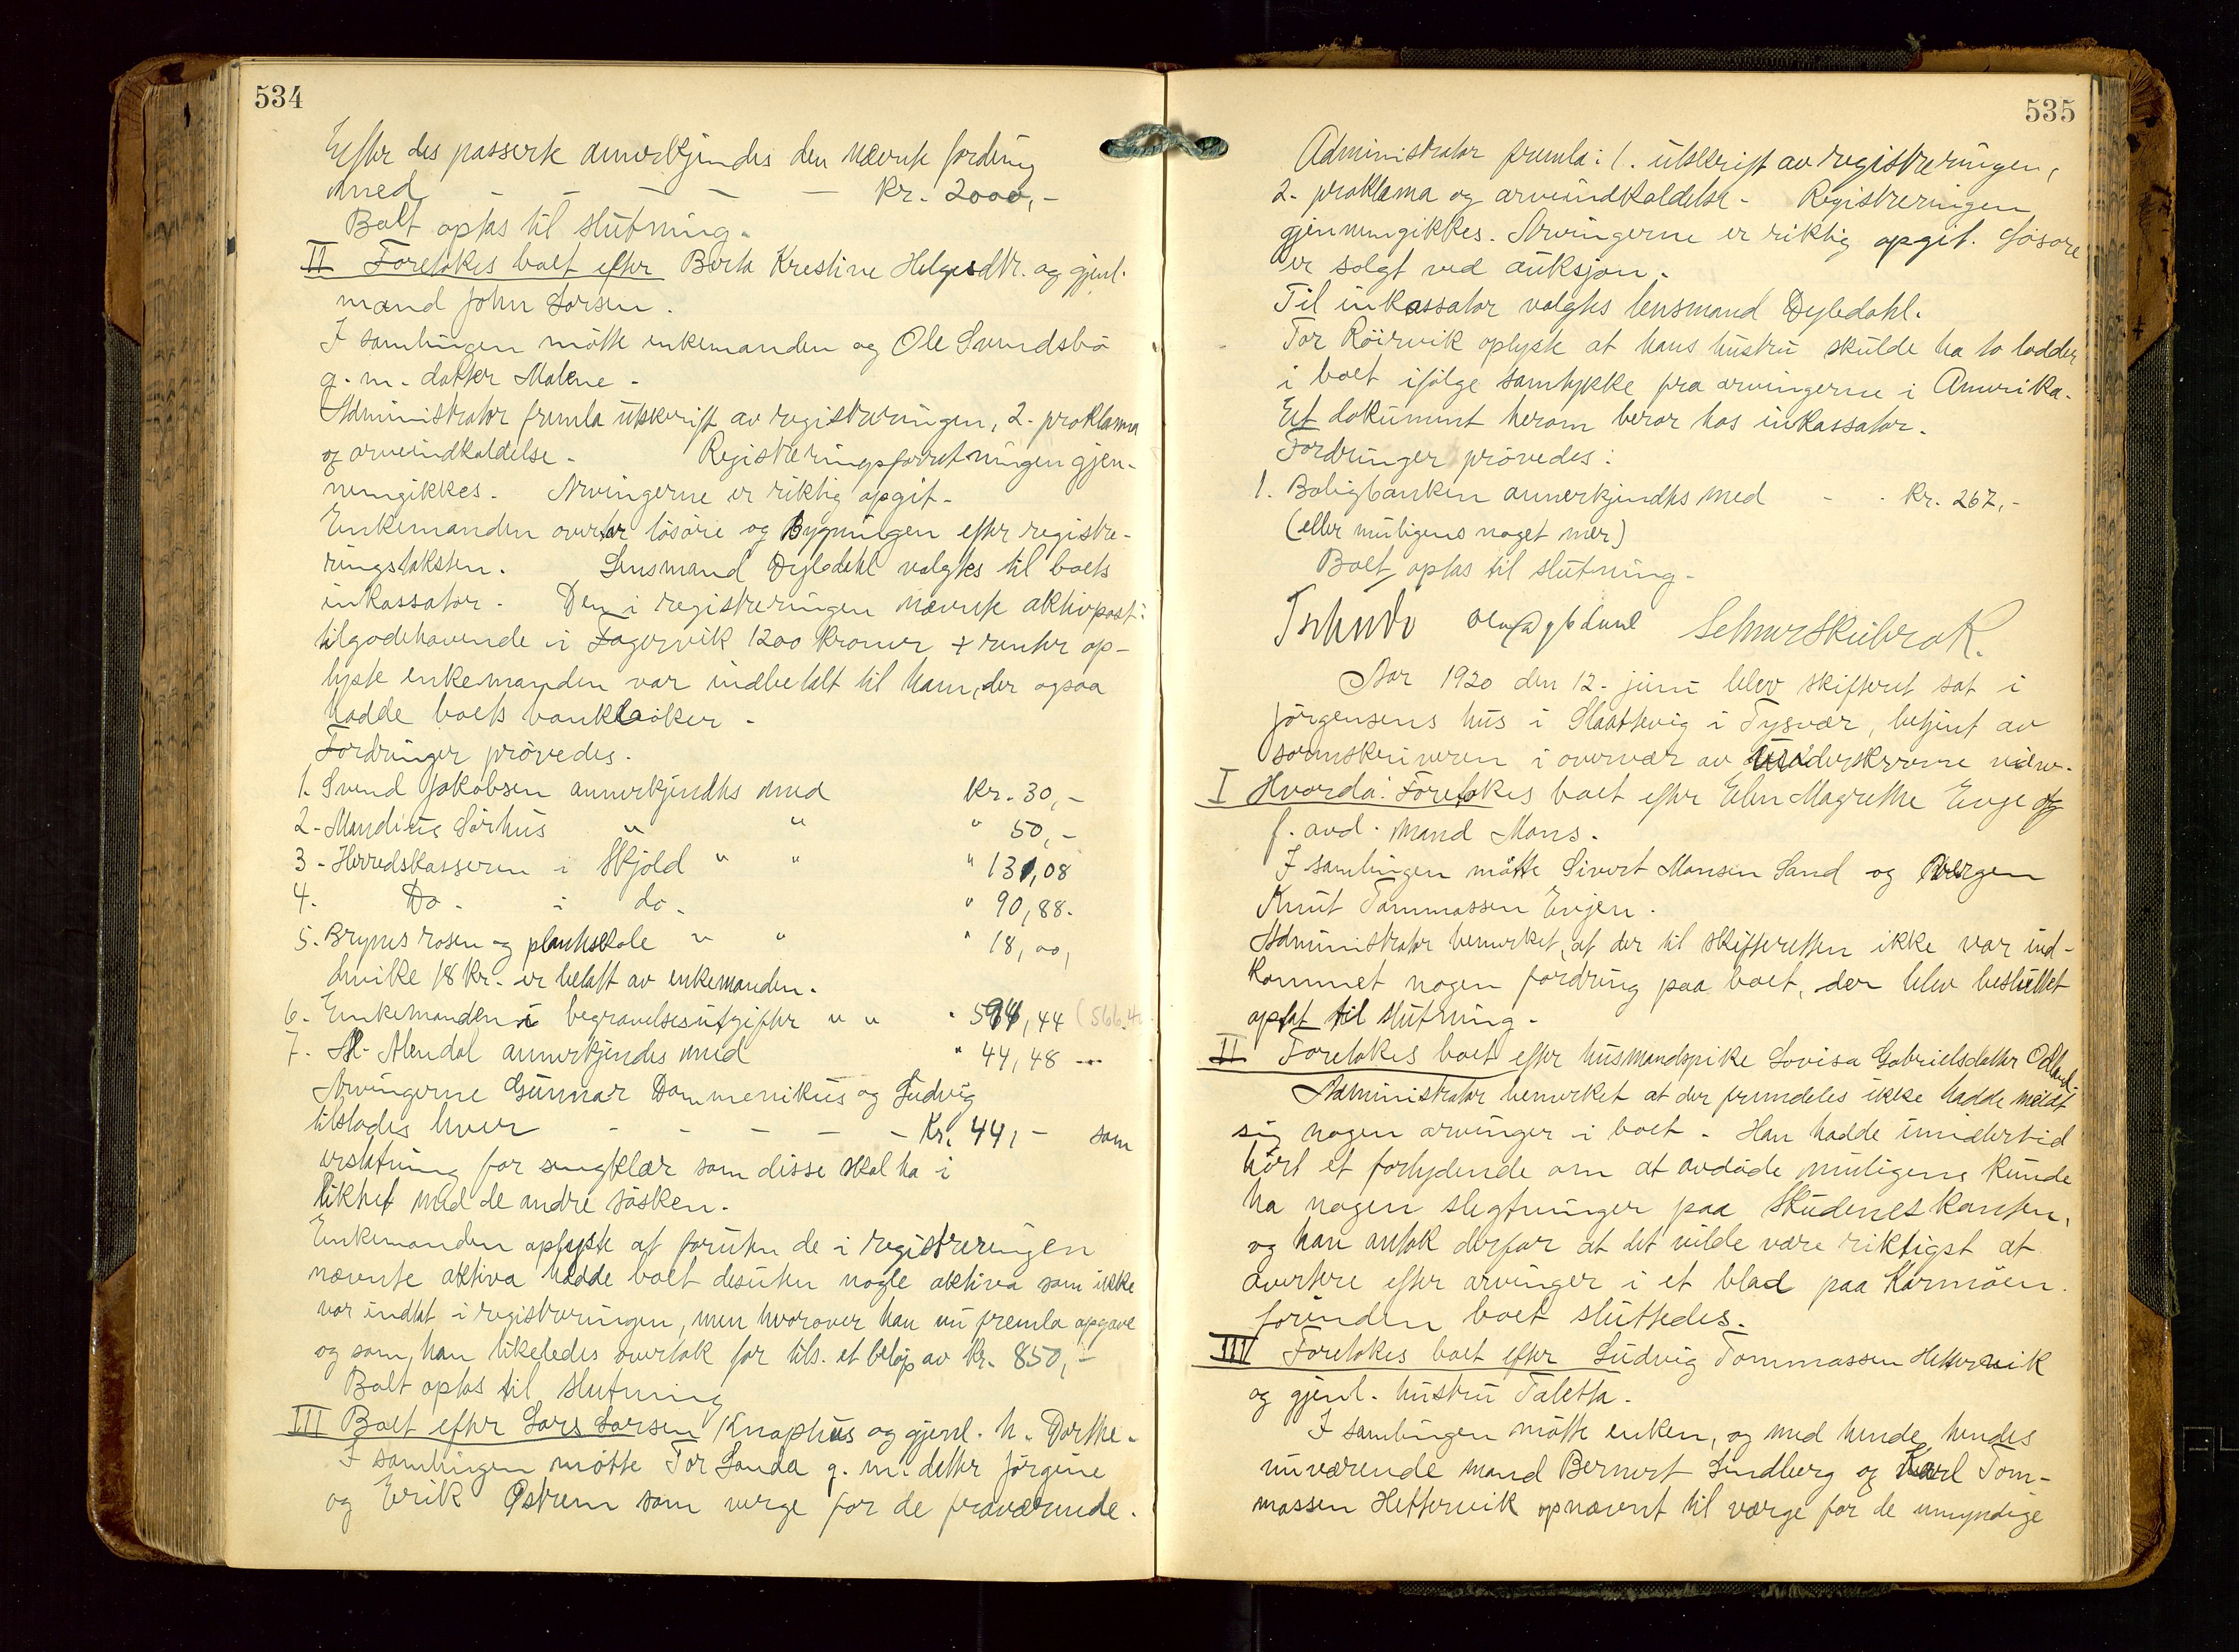 534
Efter des passerte anerkjendes den nævnte fordring
med - - - - - kr. 2000,-
Boet optas til slutning.
II Foretokes boet efter Berta Kristine Helgesdtr. og gjenl.
mand John Larsen.
I samlingen møtte enkemanden og Ole Svendsbø
g. m. datter Malene -
Administrator fremla utskrift av registreringen, 2. proklama
og arveindkaldelse. Registreringsforretningen gjen-
nemgikkes. Arvingerne er riktig opgit.
Enkemanden overtar løsøre og bygningen efter registre-
ringstaksten. Lensmand Dybdahl valgtes til boets
inkassator. Den i registreringen nævnte aktivpost:
tilgodehavende i Fagervik 1200 kroner + renter op-
lyste enkemanden var indbetalt til ham, der ogsaa
hadde boets bankbøker.
Fordringer prøvedes.
1. Svend Jakobsen anerkjendtes med kr. 30,-
2. Mandius Sørhus " " " 50,-
3. Herredskasseren i Skjold " " " 131,08
4. Do. i do. " 90,88.
5. Brynes rosen og planteskole " " " 18,00,
hvilke 18 kr. er betalt av enkemanden.
6. Enkemanden begravelsesutgifter " " " 594,44 (566.4
7. A. Alendal anerkjendes med " 44,48 ...
Arvingerne Gunnar Dommenikus og Ludvig
tilstodes hver - - - - - Kr. 44,- som
erstatning for sengklær som disse skal ha i
likhet med de andre søsken.
Enkemanden oplyste at foruten de i registreringen
nævnte aktiva hadde boet desuten nogle aktiva som ikke
var indtat i registreringen, men hvorover han nu fremla opgave
og som han likeledes overtok for tils. et beløp av kr. 850,-
Boet optas til slutning
III Boet efter Lars Larsen Knaphus og gjenl. h. Dorthe.
I samlingen møtte Tor Sanda g. m. datter Jørgine
og Erik Østrem som verge for de fraværende.
535
Administrator fremla: 1. utskrift av registreringen,
2. proklama og arveindkaldelse. Registreringen
gjennemgikkes. Arvingerne er riktig opgit. Løsøre
er solgt ved auksjon.
Til inkassator valgtes lensmand Dybdahl.
Tor Røirvik oplyste at hans hustru skulde ha to lodder
i boet ifølge samtykke fra arvingerne i Amerika.
Et dokument herom beror hos inkassator.
Fordringer prøvedes:
1. Boligbanken anerkjendtes med - - kr. 267,-
(eller muligens noget mer)
Boet optas til slutning.
Ola Dybdahl
Aar 1920 den 12. juni blev skifteret sat i
Jørgensens hus i Slaattevig i Tysvær, betjent av
sorenskriveren i overvær av underskrevne vidne.
I Hvorda: Foretokes boet efter Elen Magrethe Evje og
f. avd. mand Mons.
I samlingen møtte Sivert Monsen Sand og vergen
Knut Tommassen Evjen.
Administrator bemerket, at der til skifteretten ikke var ind-
kommet nogen fordring paa boet, der blev besluttet
optat til slutning.
II Foretokes boet efter husmandspike Lovisa Gabrielsdatter Odland.
Administrator bemerket at der fremdeles ikke hadde meldt
sig nogen arvinger i boet. Han hadde imidlertid
hørt et forlydende om at avdøde muligens kunde
ha nogen slegtninger paa Skudeneskanten,
og han antok derfor at det vilde være riktigst at
avertere efter arvinger i et blad paa Karmøen.
forinden boet sluttedes.
III Foretokes boet efter Ludvig Tommassen Hettervik
og gjenl. hustru Taletta.
I samlingen møtte enken, og med hende, hendes
nuværende mand Bernert Lindberg og Karl Tom-
massen Hettervik opnævnt til værge for de umyndige